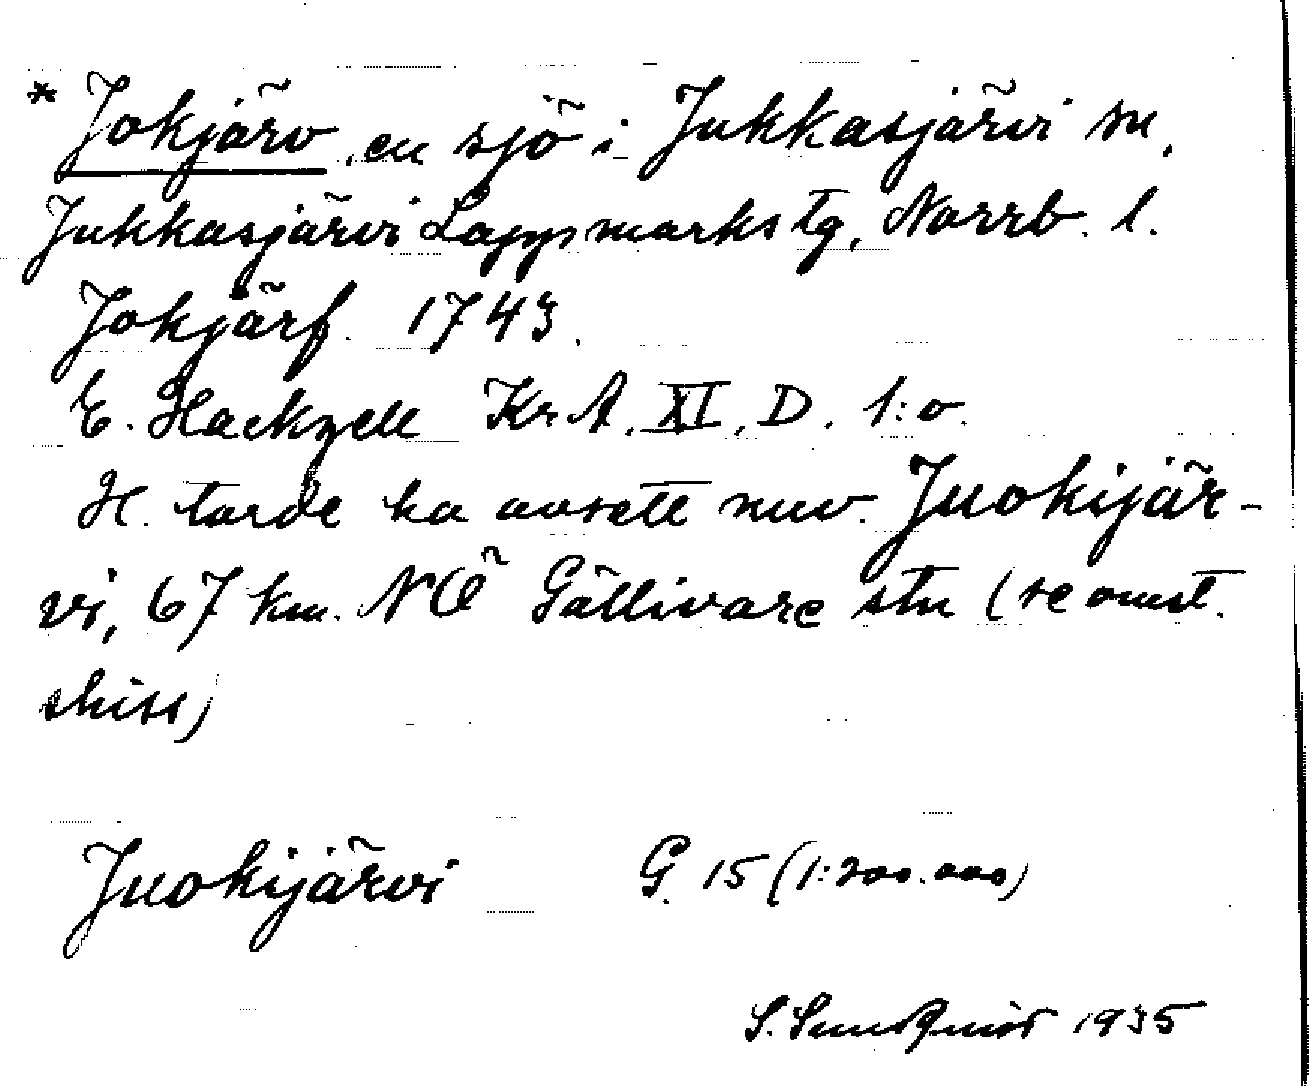 * Jokjärv, en sjö i Jukkasjärvi sn,
Jukkasjärvi Lappmarkstg, Norrb. l.
Jokjärf. 1743.
E. Hackzell KrA. XI. D. 1:o.
H. torde ha avsett nuv. Juokijär-
vi, 67 km. NÖ Gällivare stn (se omst.
skiss)
Juokijärvi G. 15 (1:200.000)
S. Sundquist 1935